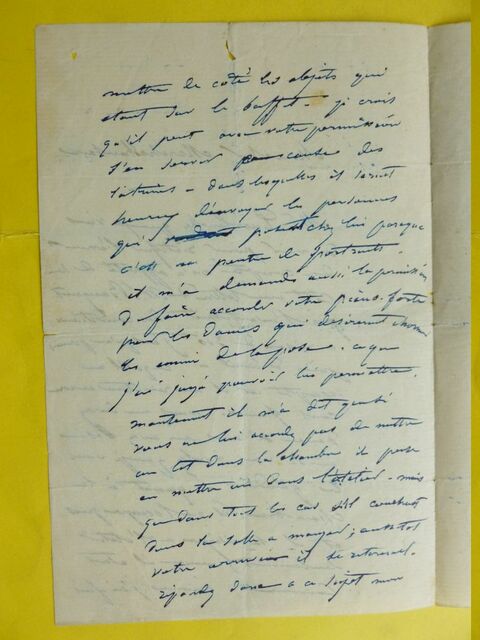 mettre de coté les objets qui
étant sur le buffet - je crois
qu'il peut avec votre permission
s'en servir cause des
soirées - dans lesquelles il serait
heureux d'envoyer les personnes
qui chez lui parceque
c'est sa peintre de portraits.
et m'a demandé aussi la permission
de faire accorder votre piano-forte
pour les dames qui désireraient
les de la pose. ce que
j'ai jugé pouvoir lui permettre.
maintenant il m'a dit que si
vous ne lui accordez pas de mettre
un lit dans la chambre il peut
en mettre un dans l'atelier - mais
que dans tous les cas s'il couchait
dans la salle a manger, aussitot
votre arrivée il se retirerait.
répondez donc a ce sujet